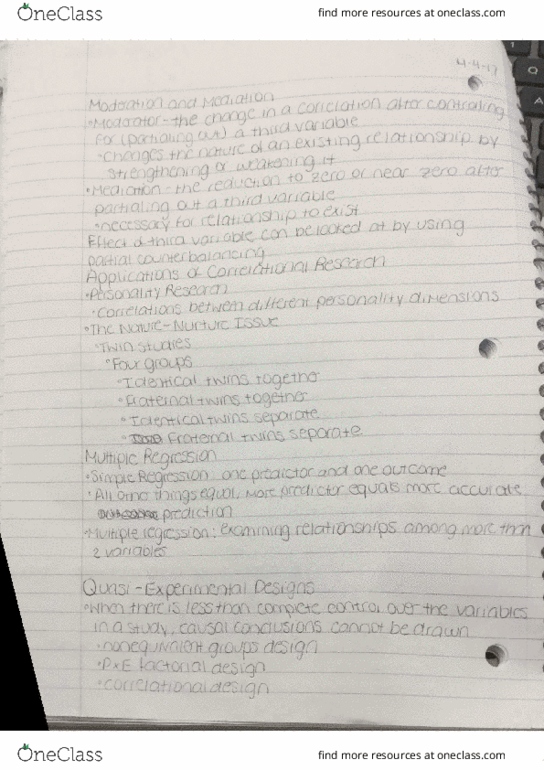 OneClass
find more resources at oneclass.com
4-4-17
Moderation and Mediation
•Moderator - the change in a correlation after controlling
for (partialing out) a third variable
•changes the nature of an existing relationship by
strengthening or weakening it
•Mediation - the reduction to zero or near zero after
partialing out a third variable
•necessary for relationship to exist
Effect of third variable can be looked at by using
partial counterbalancing
Applications of Correlational Research
•Personality Research
•correlations between different personality dimensions
•The Nature-Nurture Issue
•Twin studies
•Four groups
•Identical twins together
•Fraternal twins together
•Identical twins separate
•Fraternal twins separate
Multiple Regression
•Simple Regression: one predictor and one outcome
•All other things equal, more predictor equals more accurate
prediction
•Multiple regression: examining relationships among more than
2 variables
Quasi-Experimental Designs
•When there is less than complete control over the variables
in a study, causal conclusions cannot be drawn
•nonequivalent groups design
•PxE factorial design
•correlational design
OneClass
find more resources at oneclass.com